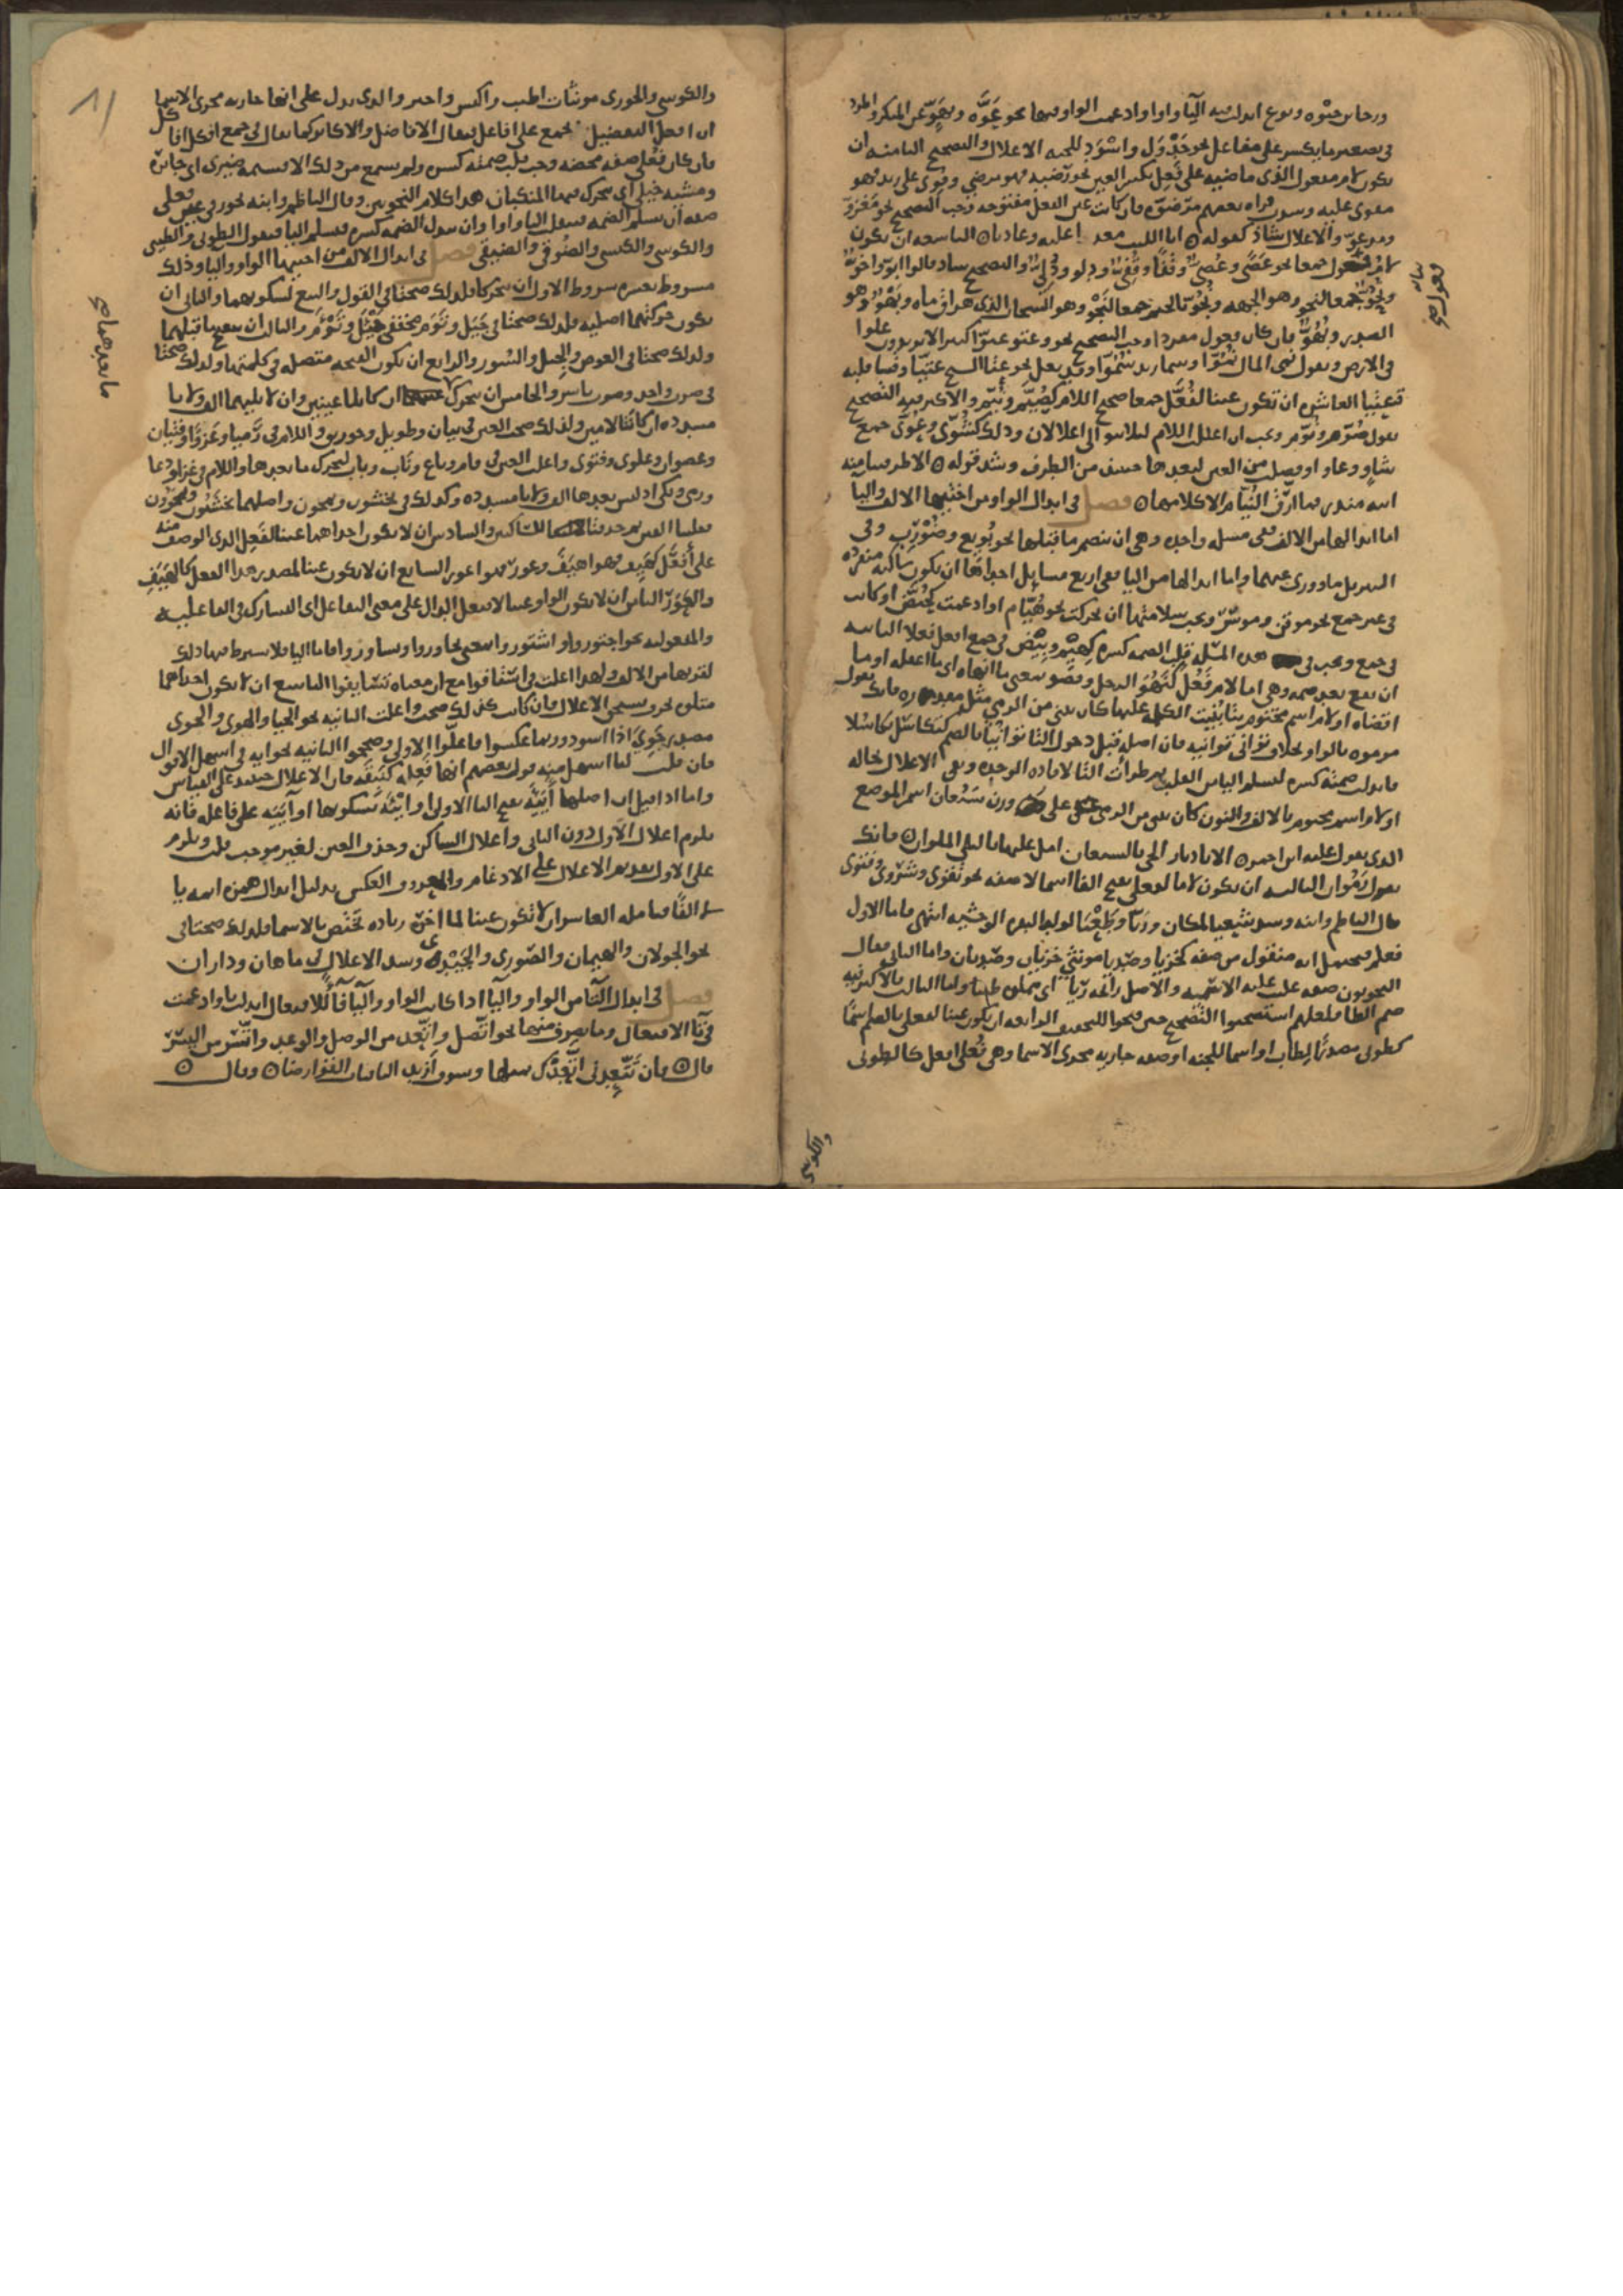 ورجا بن حيوه ونوع ابدلت فيه اليا واوا وادغمت الواو فيها نحو عَوَّه ونهوّ عن المنكر واطرد
في تصغير ما يكسر على مفاعل نحو جَدْوَل واسْوَد للحيه الاعلال والتصحيح الثامنه ان
تكون لام مفعول الذي ماضيه على فَعِل بكسر العين نحو رضيه فهو مرضي وقوى على زيد فهو
مقوى عليه وشذ قراه بعضهم مرضوّه فان كانت عين الفعل مفتوحه وجب التصحيح نحو مغزوّ
ومدعوّ والاعلال شاذ كقوله انا الليث معديا عليه وعاديا التاسعه ان تكون
لام فعول جمعا نحو عَصًى وعُصِيّ وقَفًا وقُفِيّ ودلو ودُلِيّ والتصحيح شاذ قالوا ابوّ واخوّ
ونُحُوّ جمعا لنحو وهو الجهه ونُجُوّ بالجيم جمعا لنَجْو وهو السحاب الذي هراق ماه وبَهْو وهو
الصدر وبُهُوّ فان كان فعول مفردا وجب التصحيح نحو وعتو عتوّا كبيرا لا يريدون علوا
في الارض وتقول نمى المال نُمُوّا وسما زيد سُمُوّا وقد يعل نحو عتا الشيخ عتيّا وقسا قلبه
قسِيّا العاشر ان تكون عينا لفُعَّل جمعا صحيح اللام كصُيَّم ونُيَّم والاكثر فيه التصحيح
تقول صُوَّم ونُوَّم ويجب ان اعلل اللام ليلا يتوالى اعلالان وذلك كشُوًّى وغُوًّى جمع
شاوٍ وغاو او فصلت من العين لبعدها حينئذ من الطرف وشذ قوله الا طرقتنا ميه
ابنه منذر فما ارّق النُيّام الا كلامها فصل في ابدال الواو من اختيها الالف واليا
اما ابدالها من الالف ففي مسله واحده وهي ان ينضم ما قبلها نحو بُويع وضُورِب وفي
التنزيل ما وورى عنهما واما ابدالها من اليا ففي اربع مسايل احداها ان تكون ساكنه مفرده
في غير جمع نحو موقن وموسر ويجب سلامتها ان تحركت نحو هُيَام او ادغمت كحُيَّض او كانت
في جمع ويجب في هذه المسله قلب الضمه كسره كهِيْم وبِيْض في جمع افعل فعلا الثانيه
ان تقع بعد ضمه وهي اما لام فَعُل كنَهُوَ الرجل وقضو بمعنى ما انهاه اى ما اعقله او ما
اقضاه او لام اسم مختوم بتا بُنيت الكلمه عليها كان تبنى من الرمي مثل مقدره فانك تقول
مرموه بالواو بخلاف توانى توانيه فان اصله قبل دخول التا توانيًا بالضم كتكاسَل تكاسُلا
فابدلت ضمته كسره لتسلم اليا من القلب ثم طرات التا لافاده الوحده وبقى الاعلال بحاله
او لام اسم مختوم بالالف والنون كان تبنى من الرمي على وزن سَبُعان اسم الموضع
الذي يقول عليه ابن احمر الا يا ديار الحي بالسبعان امل عليها بالبلى الملوان فانك
تقول رَمُوان الثالثه ان تكون لاما لفعلى بفتح الفا اسما لا صفه نحو تقوى وشروى وفتوى
قال الناظم وابنه وشذ سَعْيا لمكان ورَيّا وطَغْيَا لولد البقره الوحشيه انتهى فاما الاول
فعلم فيحتمل انه منقول من صفه كخزيا وصديا مونثى خزيان وصديان واما الثاني فقال
النحويون صفه غلبت عليه الاسميه والاصل رائحه ريّا اى مملوه طيبا واما الثالث فالاكثر فيه
ضم الطا فلعلهم استصحبوا التصحيح حين فتحوا للتخفيف الرابعه ان تكون عينا لفعلى بالضم اسمًا
كطوبى مصدرًا لطاب او اسما للجنه او صفه جاريه مجرى الاسما وهي فُعلى افعل كالطوبى
والكوسى
والكوسى والخورى مونثات اطيب واكيس واخير والذي يدل على انها جاريه مجرى الاسما
ان افعل التفضيل يجمع على افاعل فيقال الافاضل والاكابر كما يقال في جمع افكل افاكل
فان كان فُعْلى صفه محضه وجب قلب ضمته كسره ولم يسمع من ذلك الا قسمه ضيزى اى جائره
ومشيه حيكى اى يتحرك فيها المنكبان هذا كلام النحويين وقال الناظم وابنه يجوز في عين فعلى
صفه ان تسلم الضمه فتقلب اليا واوا وان تبدل الضمه كسره فتسلم اليا فتقول الطوبى والطيبى
والكوسى والكيسى والضُوقى والضيقى فصل في ابدال الالف من اختيها الواو واليا وذلك
مشروط بعشره شروط الاول ان يتحركا فلذلك صحتا في القول والبيع لسكونهما والثاني ان
تكون حركتهما اصليه فلذلك صحتا في جَيَل وتَوَم مخففى جَيْئَل وتَوْءَم والثالث ان ينفتح ما قبلهما
ولذلك صحتا في العوض والحِيَل والسُوَر والرابع ان تكون الفتحه متصله في كلمتيهما ولذلك صحتا
في ضرب واحد وضرب ياسر والخامس ان يتحرك ما بعدهما ان كانتا عينين وان لا يليهما الف ولا يا
مشدده ان كانتا لامين ولذلك صحت العين في بيان وطويل وخورنق واللام في رَمَيا وغَزَوا وفتيان
وعصوان وعلوى وفتوى واعلت العين في قام وباع ونَاب وباب لتحرك ما بعدها واللام في غزا ودعا
ورمى وبكى اذ ليس بعدها الف ولا يا مشدده وكذلك في يخشون ويمحون واصلهما يخشَيُون ويمحَوُون
فقلبتا الفين ثم حذفتا للساكنين والسادس ان لا تكون احداهما عينا لفَعِل الذي الوصف منه
على أَفعَل كهَيِفَ فهو اهيَفُ وعور فهو اعور السابع ان لا تكون عينا لمصدر هذا الفعل كالهَيَف
والعَوَر الثامن ان لا تكون الواو عينا لافتعل الدال على معنى التفاعل اى التشارك في الفاعليه
والمفعوليه نحو اجتوروا واشتوروا بمعنى تجاوروا وتشاوروا فاما اليا فلا يشترط فيها ذلك
لقربها من الالف ولهذا اعلت في استافوا مع ان معناه تسايفوا التاسع ان لا تكون احداهما
متلوه بحرف يستحق الاعلال فان كانت كذلك صحت واعلت الثانيه نحو الحيا والهوى والحوى
مصدر حَوِيَ اذا اسود وربما عكسوا فاعلّوا الاولى وصححوا الثانيه نحو ايه في اسهل الاقوال
فان قلت لنا اسهل منه قول بعضهم انها فَعِله كنَبِقَه فان الاعلال حينئذ على القياس
واما اذا قيل ان اصلها أَيَيَه بفتح اليا الاولى او ايْيَه بسكونها او آيِيَه على فاعله فانه
يلزم اعلال الاول دون الثاني واعلال الساكن وحذف العين لغير موجب قلت ويلزم
على الاول تقديم الاعلال على الادغام والمعروف العكس بدليل ابدال همزه ايمه يا
لا الفًا فتامله العاشر ان لا تكون عينا لما اخره زياده تختص بالاسما فلذلك صحتا في
نحو الجولان والهيمان والصَوَرى والحَيَدَى وشذ الاعلال في ماهان وداران
فصل في ابدال التا من الواو واليا اذا كانت الواو واليا فآءً للافتعال ابدلت تا وادغمت
في تا الافتعال وما تصرف منها نحو اتّصل واتّعد من الوصل والوعد واتّسر من اليُسْر
قال فان تَتَّعِدْنى اتَّعِدْك بمثلها وسوف أَزيد الباقيات القوارصا وقال